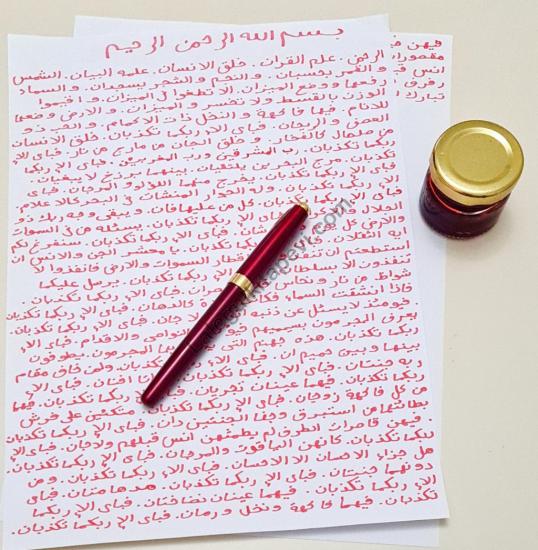 بسم الله الرحمن الرحيم
الرحمن . علم القران . خلق الانسان . علمه البيان . الشمس
و القمر بحسبان . و النجم و الشجر يسجدان . و السماء
رفعها و وضع الميزان . الا تطغوا في الميزان . و اقيموا
الوزن بالقسط ولا تخسر و الميزان . و الارض وضعها
للانام . فيها فاكهة و النخل ذات الاكمام . و الحب ذو
العصف و الريحان . فباى الاء ربكما تكذبان . خلق الانسان
من صلصال كالفخار . و خلق الجان من مارج من نار . فباى الاء
ربكما تكذبان . رب المشرقين و رب المغربين . فباى الاء ربكما
تكذبان . مرج البحرين يلتقيان . بينهما برزخ لا يبغيان
ربكما تكذبان . يخرج منهما اللؤلؤ و المرجان . فباى
ربكما تكذبان . وله الجوار المنشات في البحر كالا علام .
كل من عليها فان . و يبقى وجه ربك ذو
الجلال و ربكما تكذبان . يسئله من في السموات
والارض كل يوم شان . فباى الاء ربكما تكذبان . سنفرغ لكم
ايه الثقلان . يا معشر الجن والانس ان
استطعتم ان اقطار السموات والارض فانفذوا لا
تنفذون الا بسلطان ربكما تكذبان . يرسل عليكما
شواظ من نار و نحاس فباى الاء ربكما تكذبان .
فاذا انشقت السماء كالدهان . فباى الاء ربكما تكذبان
فيومئذ لايسئل عن ذنبه جان . فباى الاء ربكما تكذبان .
يعرف المجرمون بسيمهم بالنواصي والاقدام . فباى الاء
ربكما تكذبان . هذه جهنم التى المجرمون . يطوفون
بينها و بين حميم ان . فباى الاء تكذبان . ولمن خاف مقام
ربه جنتان . فباى الاء ربكما افنان . فباى الاء
ربكما تكذبان . فيهما عينان تجريان . فباى الاء ربكما تكذبان . فيهما
من كل فاكهة زوجان . فباى الاء ربكما تكذبان . متكئين على فرش
بطائنها من استبرق وجنا الجنتين دان . فباى الاء ربكما تكذبان
. فيهن قاصرات الطرف لم يطمثهن انس قبلهم ولا جان . فباى الاء
ربكما تكذبان . كانهن الياقوت والمرجان . فباى الاء ربكما تكذبان .
هل جزاء الاحسان الا الاحسان . فباى الاء ربكما تكذبان . ومن
دونهما جنتان . فباى الاء ربكما تكذبان . مدهامتان . فباى
الاء ربكما تكذبان . فيهما عينان نضاختان . فباى الاء ربكما
تكذبان . فيهما فاكهة ونخل و رمان . فباى الاء ربكما تكذبان .
فيهن
مقصورات
انس
رفرف
تبارك